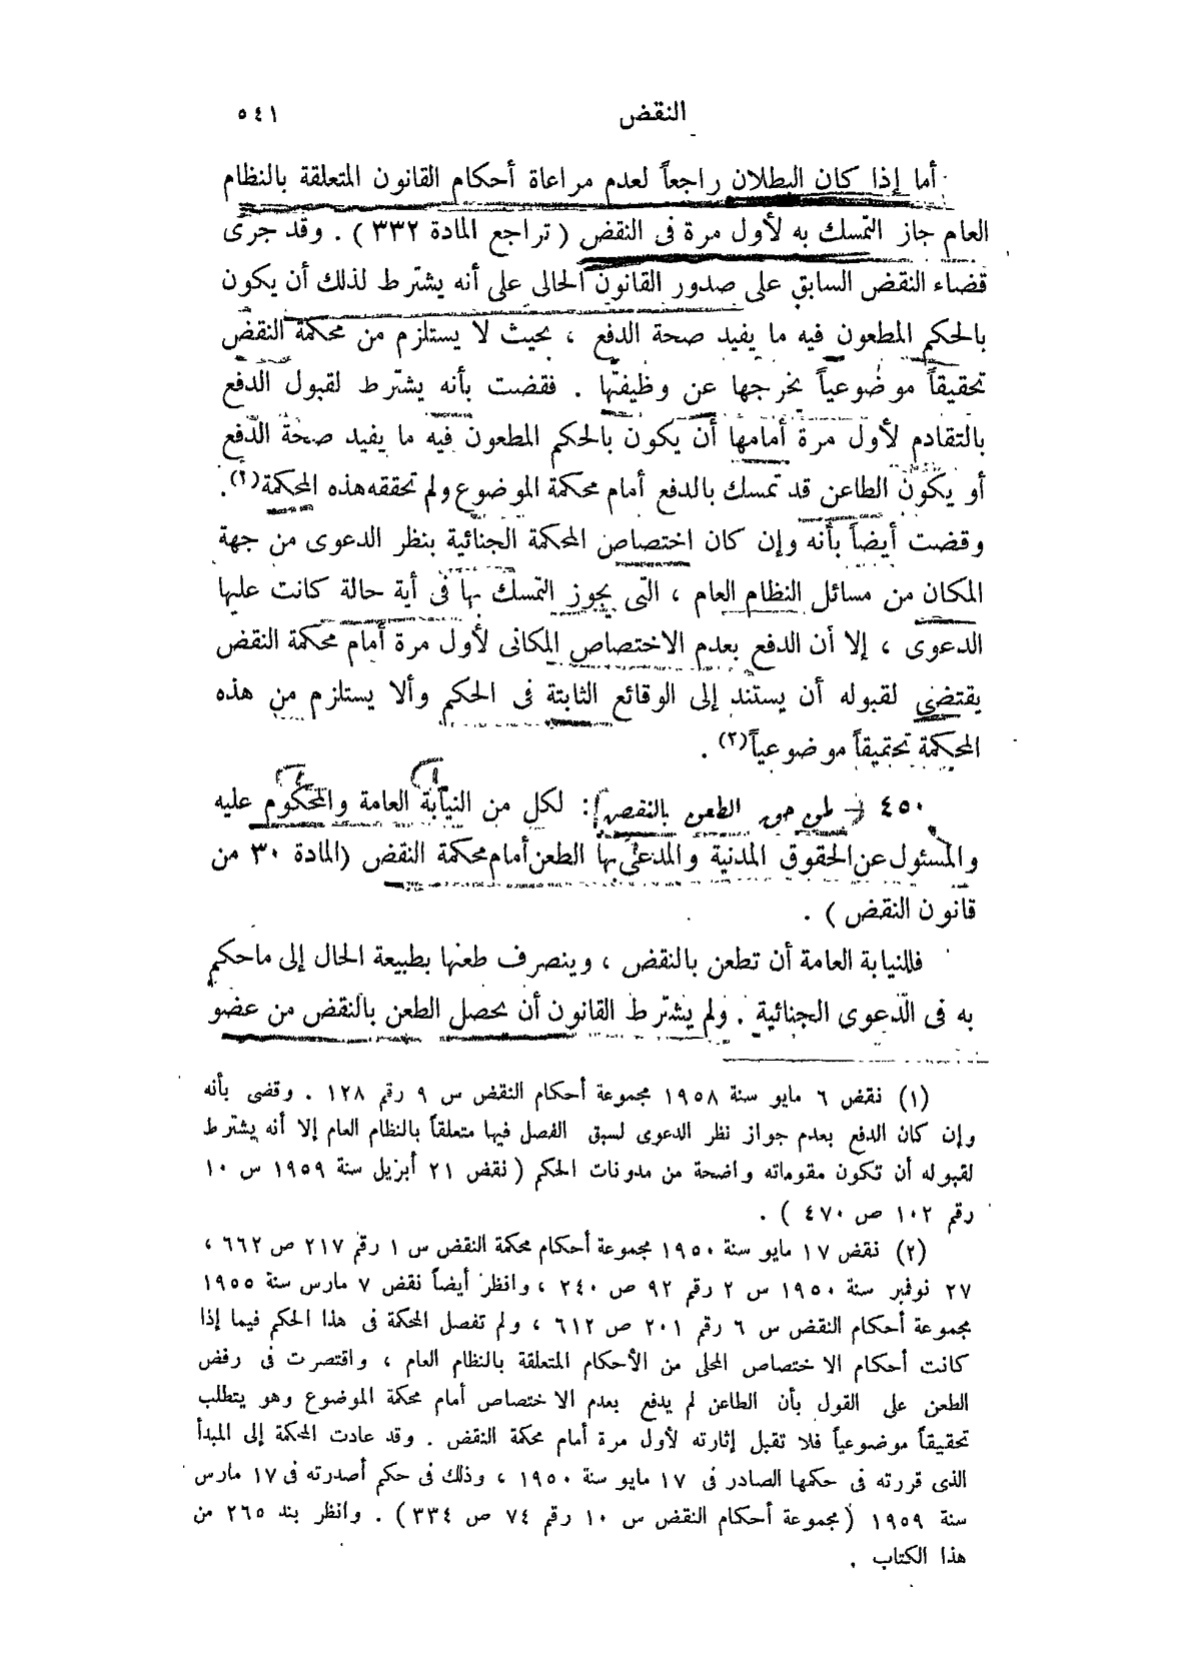 النقض ٥٤١
أما إذا كان البطلان راجعاً لعدم مراعاة أحكام القانون المتعلقة بالنظام
العام جاز التمسك به لأول مرة فى النقض ( تراجع المادة ٣٣٢ ) . وقد جرى
قضاء النقض السابق على صدور القانون الحالى على أنه يشترط لذلك أن يكون
بالحكم المطعون فيه ما يفيد صحة الدفع ، بحيث لا يستلزم من محكمة النقض
تحقيقاً موضوعياً يخرجها عن وظيفتها . فقضت بأنه يشترط لقبول الدفع
بالتقادم لأول مرة أمامها أن يكون بالحكم المطعون فيه ما يفيد صحة الدفع
أو يكون الطاعن قد تمسك بالدفع أمام محكمة الموضوع ولم تحققه هذه المحكمة(١).
وقضت أيضاً بأنه وإن كان اختصاص المحكمة الجنائية بنظر الدعوى من جهة
المكان من مسائل النظام العام ، التى يجوز التمسك بها فى أية حالة كانت عليها
الدعوى ، إلا أن الدفع بعدم الاختصاص المكانى لأول مرة أمام محكمة النقض
يقتضى لقبوله أن يستند إلى الوقائع الثابتة فى الحكم وألا يستلزم من هذه
المحكمة تحقيقاً موضوعياً(٢) .
٤٥٠ – الطعن بالنقض : لكل من النيابة العامة والمحكوم عليه
والمسئول عن الحقوق المدنية والمدعى بها الطعن أمام محكمة النقض (المادة ٣٠ من
قانون النقض ) .
فللنيابة العامة أن تطعن بالنقض ، وينصرف طعنها بطبيعة الحال إلى ماحكم
به فى الدعوى الجنائية . ولم يشترط القانون أن يحصل الطعن بالنقض من عضو
(١) نقض ٦ مايو سنة ١٩٥٨ مجموعة أحكام النقض س ٩ رقم ١٢٨ . وقضى بأنه
وإن كان الدفع بعدم جواز نظر الدعوى لسبق الفصل فيها متعلقاً بالنظام العام إلا أنه يشترط
لقبوله أن تكون مقوماته واضحة من مدونات الحكم ( نقض ٢١ أبريل سنة ١٩٥٩ س ١٠
رقم ١٠٢ ص ٤٧٠ ) .
(٢) نقض ١٧ مايو سنة ١٩٥٠ مجموعة أحكام محكمة النقض س ١ رقم ٢١٧ ص ٦٦٢ ،
٢٧ نوفمبر سنة ١٩٥٠ س ٢ رقم ٩٢ ص ٢٤٠ ، وانظر أيضاً نقض ٧ مارس سنة ١٩٥٥
مجموعة أحكام النقض س ٦ رقم ٢٠١ ص ٦١٢ ، ولم تفصل المحكمة فى هذا الحكم فيما إذا
كانت أحكام الاختصاص المحلى من الأحكام المتعلقة بالنظام العام ، واقتصرت فى رفض
الطعن على القول بأن الطاعن لم يدفع بعدم الاختصاص أمام محكمة الموضوع وهو يتطلب
تحقيقاً موضوعياً فلا تقبل إثارته لأول مرة أمام محكمة النقض . وقد عادت المحكمة إلى المبدأ
الذى قررته فى حكمها الصادر فى ١٧ مايو سنة ١٩٥٠ ، وذلك فى حكم أصدرته فى ١٧ مارس
سنة ١٩٥٩ (مجموعة أحكام النقض س ١٠ رقم ٧٤ ص ٣٣٤) . وانظر بند ٢٦٥ من
هذا الكتاب .